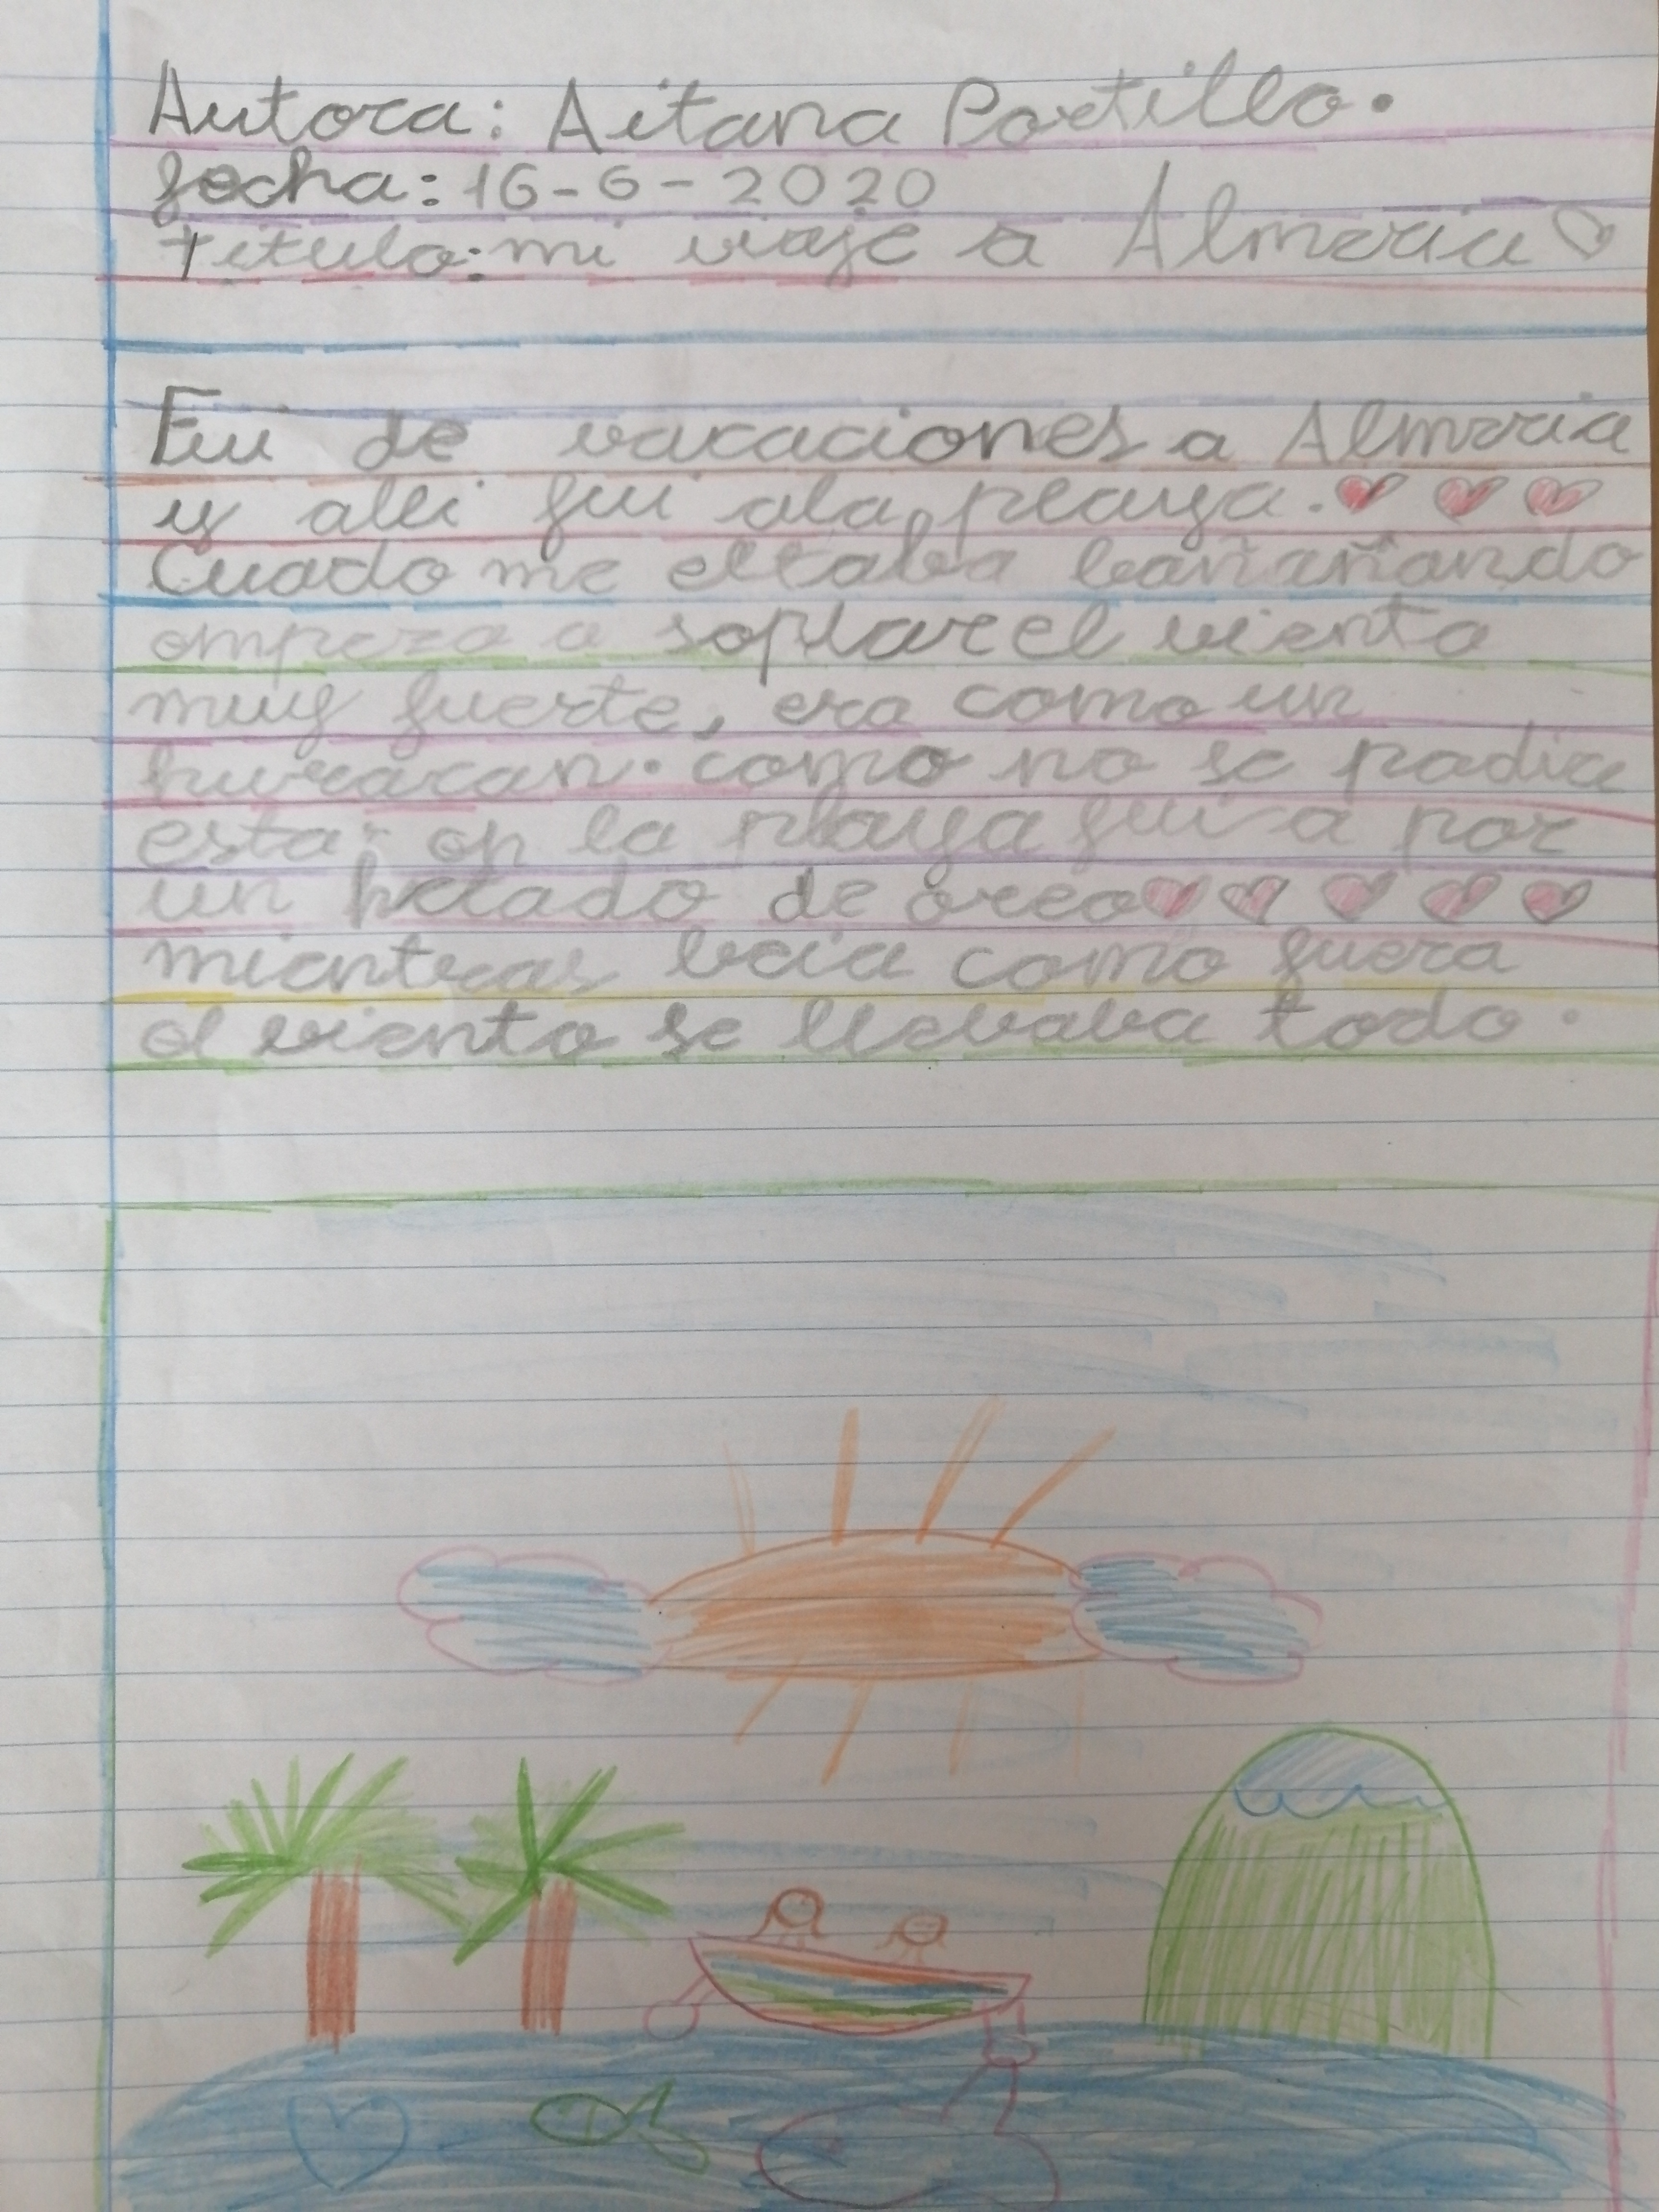 Autora: Aitana Portillo.
fecha: 16-6-2020
Titulo: mi viaje a Almeria
Fui de vacaciones a Almeria
y alli fui ala playa.
Cuado me estaba bañañando
empezo a soplar el viento
muy fuerte, era como un
huracan. como no se podia
estar en la playa fui a por
un helado de oreo
mientras veia como fuera
el viento se llevaba todo.